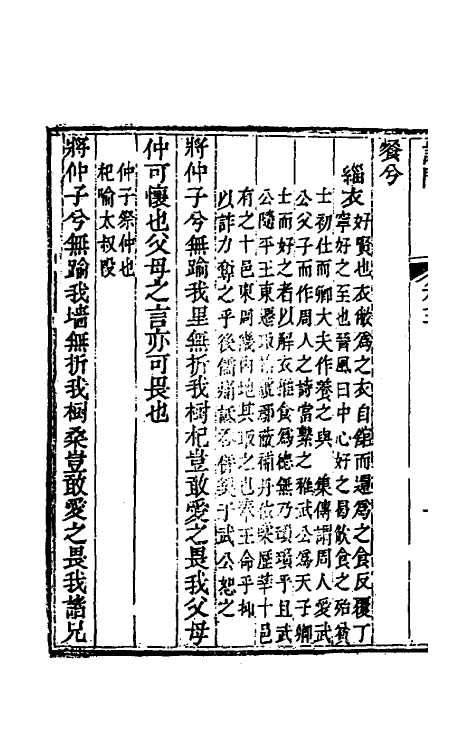 餐兮
緇衣好賢也衣敝爲之衣自館而還爲之食反覆丁
寧好之至也晉風曰中心好之曷飲食之殆貧
士初仕而卿大夫作養之與 集傳謂周人愛武
公父子而作周人之詩當繫之雅武公爲天子卿
士而好之者以解衣推食爲德無乃瑣瑣乎且武
公隨平王東遷取 虢鄶蔽補丹依㽥歷華十邑
有之十邑東周畿內地其取之也奉王命乎抑
以詐力奪之乎後儒痛詆 武公恕之
將仲子兮無踰我里無折我樹杞豈敢愛之畏我父母
仲可懷也父母之言亦可畏也
仲子祭仲也
杞喻太叔段
將仲子兮無踰我墻無折我樹桑豈敢愛之畏我諸兄